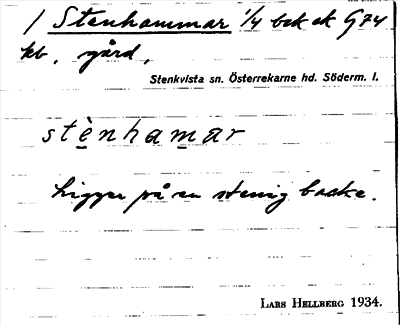 / Stenhammar 1/4 bek ek G74
kb. gård,
Stenkvista sn. Österrekarne hd. Söderm. l.
stènhamar
Ligger på en stenig backe.
LARS HELLBERG 1934.